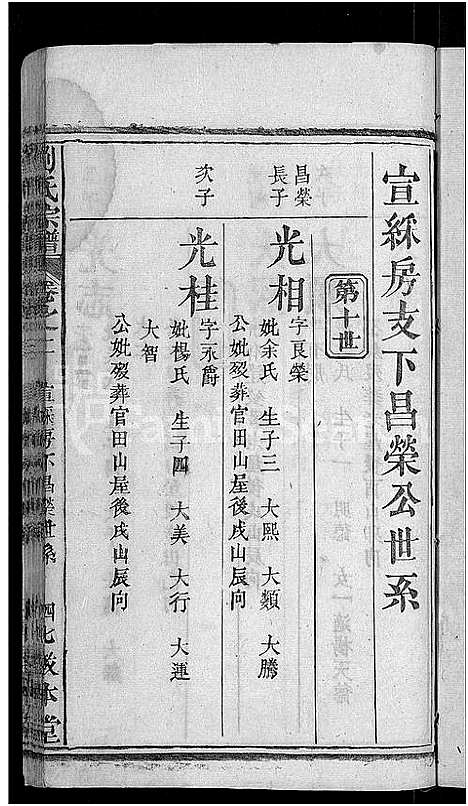 宣綵房支下昌榮公世系
第十世
昌榮長子
光相
字長榮
妣余氏 生子三 大熙 大類 大騰
公妣歿葬官田山屋後戌山辰向
次子
光桂
字永爵
妣楊氏 生子四 大美 大行 大運
大智
公妣歿葬官田山屋後戌山辰向
劉氏宗譜 卷之二 宣綵房下昌榮世系 四七 本堂